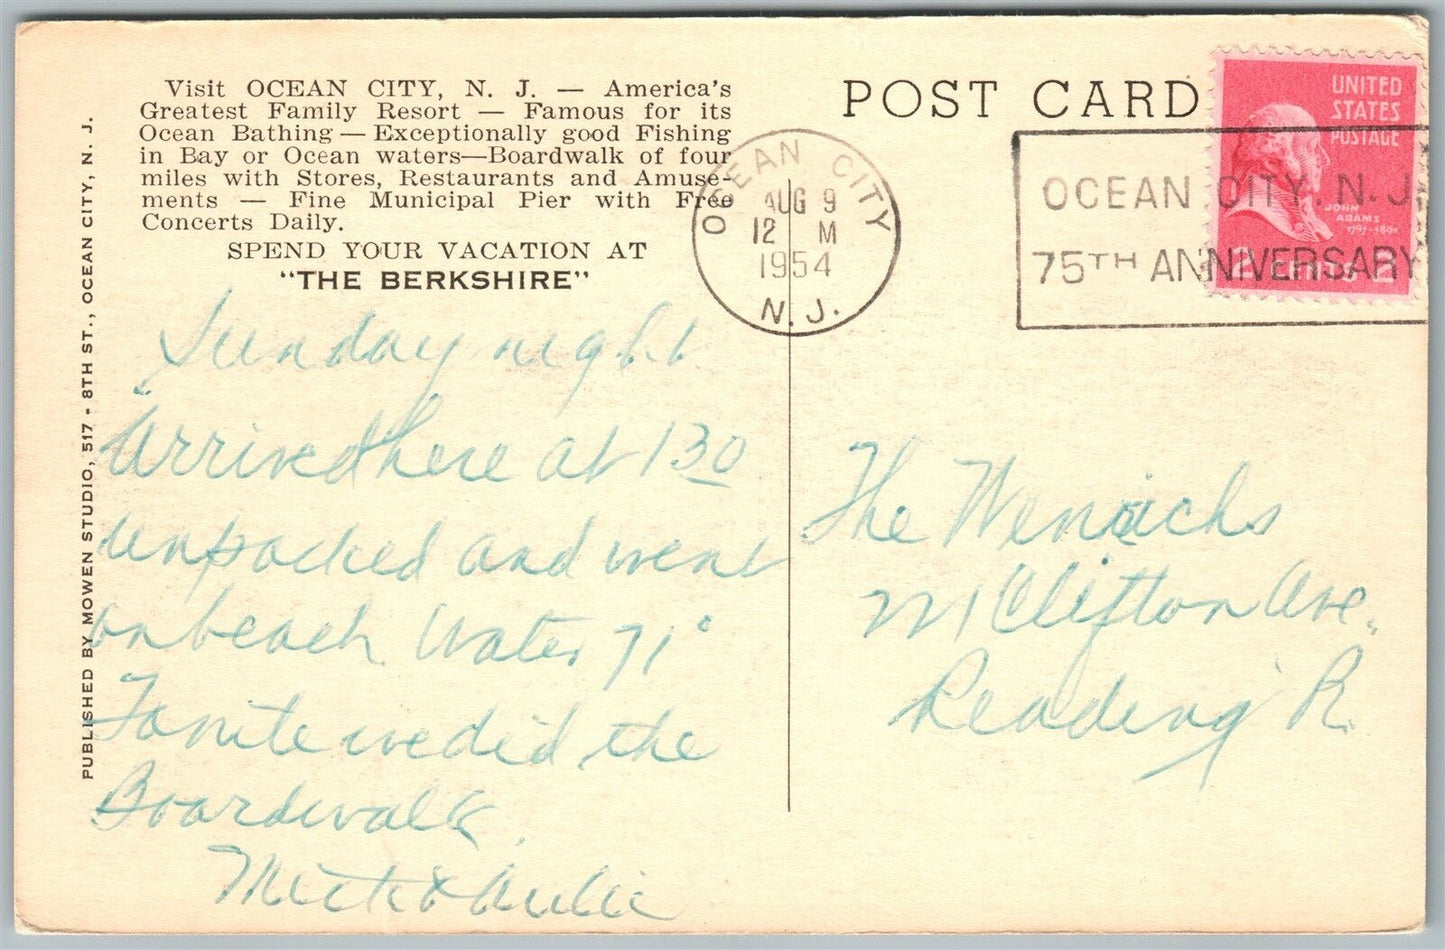 Visit OCEAN CITY, N. J. — America's
Greatest Family Resort — Famous for its
Ocean Bathing — Exceptionally good Fishing
in Bay or Ocean waters—Boardwalk of four
miles with Stores, Restaurants and Amuse-
ments — Fine Municipal Pier with Free
Concerts Daily.
SPEND YOUR VACATION AT
"THE BERKSHIRE"
PUBLISHED BY MOWEN STUDIO, 517 - 8TH ST., OCEAN CITY, N. J.
Sunday night
Arrived here at 130
Unpacked and went
on beach. Water 71°
Tonite we did the
Boardwalk.
&
POST CARD
OCEAN CITY
AUG 9
12 M
1954
N. J.
OCEAN CITY, N. J.
75TH ANNIVERSARY
UNITED
STATES
POSTAGE
JOHN
ADAMS
1797-1801
2 CENTS 2
The
Clifton Ave.
Reading